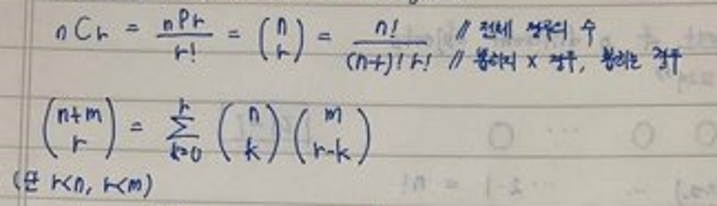 nCr = nPr / r! = (n r) = n! / (n-r)! r! // 전체 경우의 수 // 뽑히지 X 경우, 뽑히는 경우
(n+m r) = Σ k=0 r (n k) (m r-k)
(단 r<n, r<m)